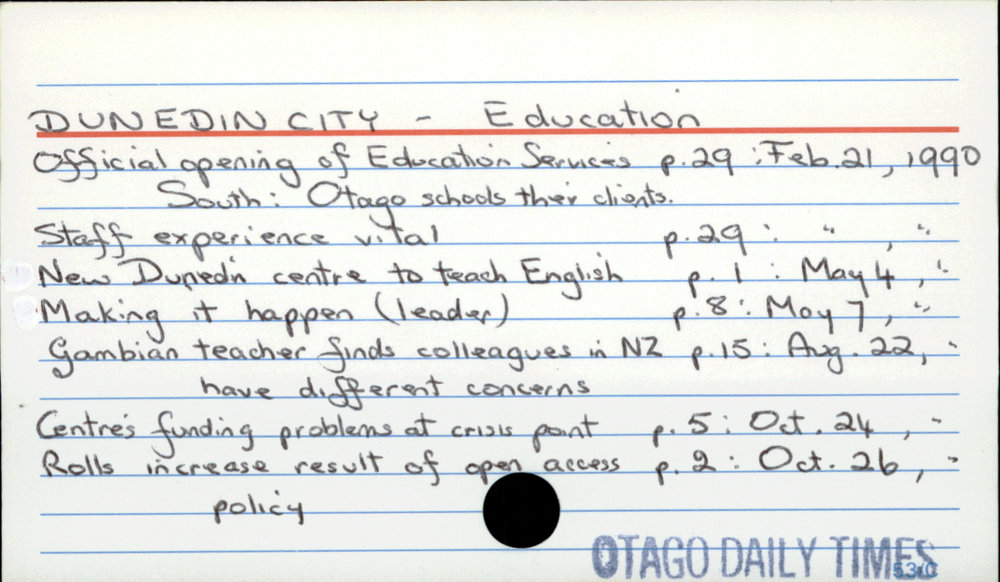 DUNEDIN CITY - Education
Official opening of Education Services p.29 : Feb. 21, 1990
South: Otago schools their clients.
Staff experience vital p.29 : " , "
New Dunedin centre to teach English p. 1 : May 4 , "
Making it happen (leader) p.8 : May 7 , "
Gambian teacher finds colleagues in NZ p.15 : Aug. 22, "
have different concerns
Centre's funding problems at crisis point p. 5 : Oct. 24 , "
Rolls increase result of open access p. 2 : Oct. 26 , "
policy
OTAGO DAILY TIMES